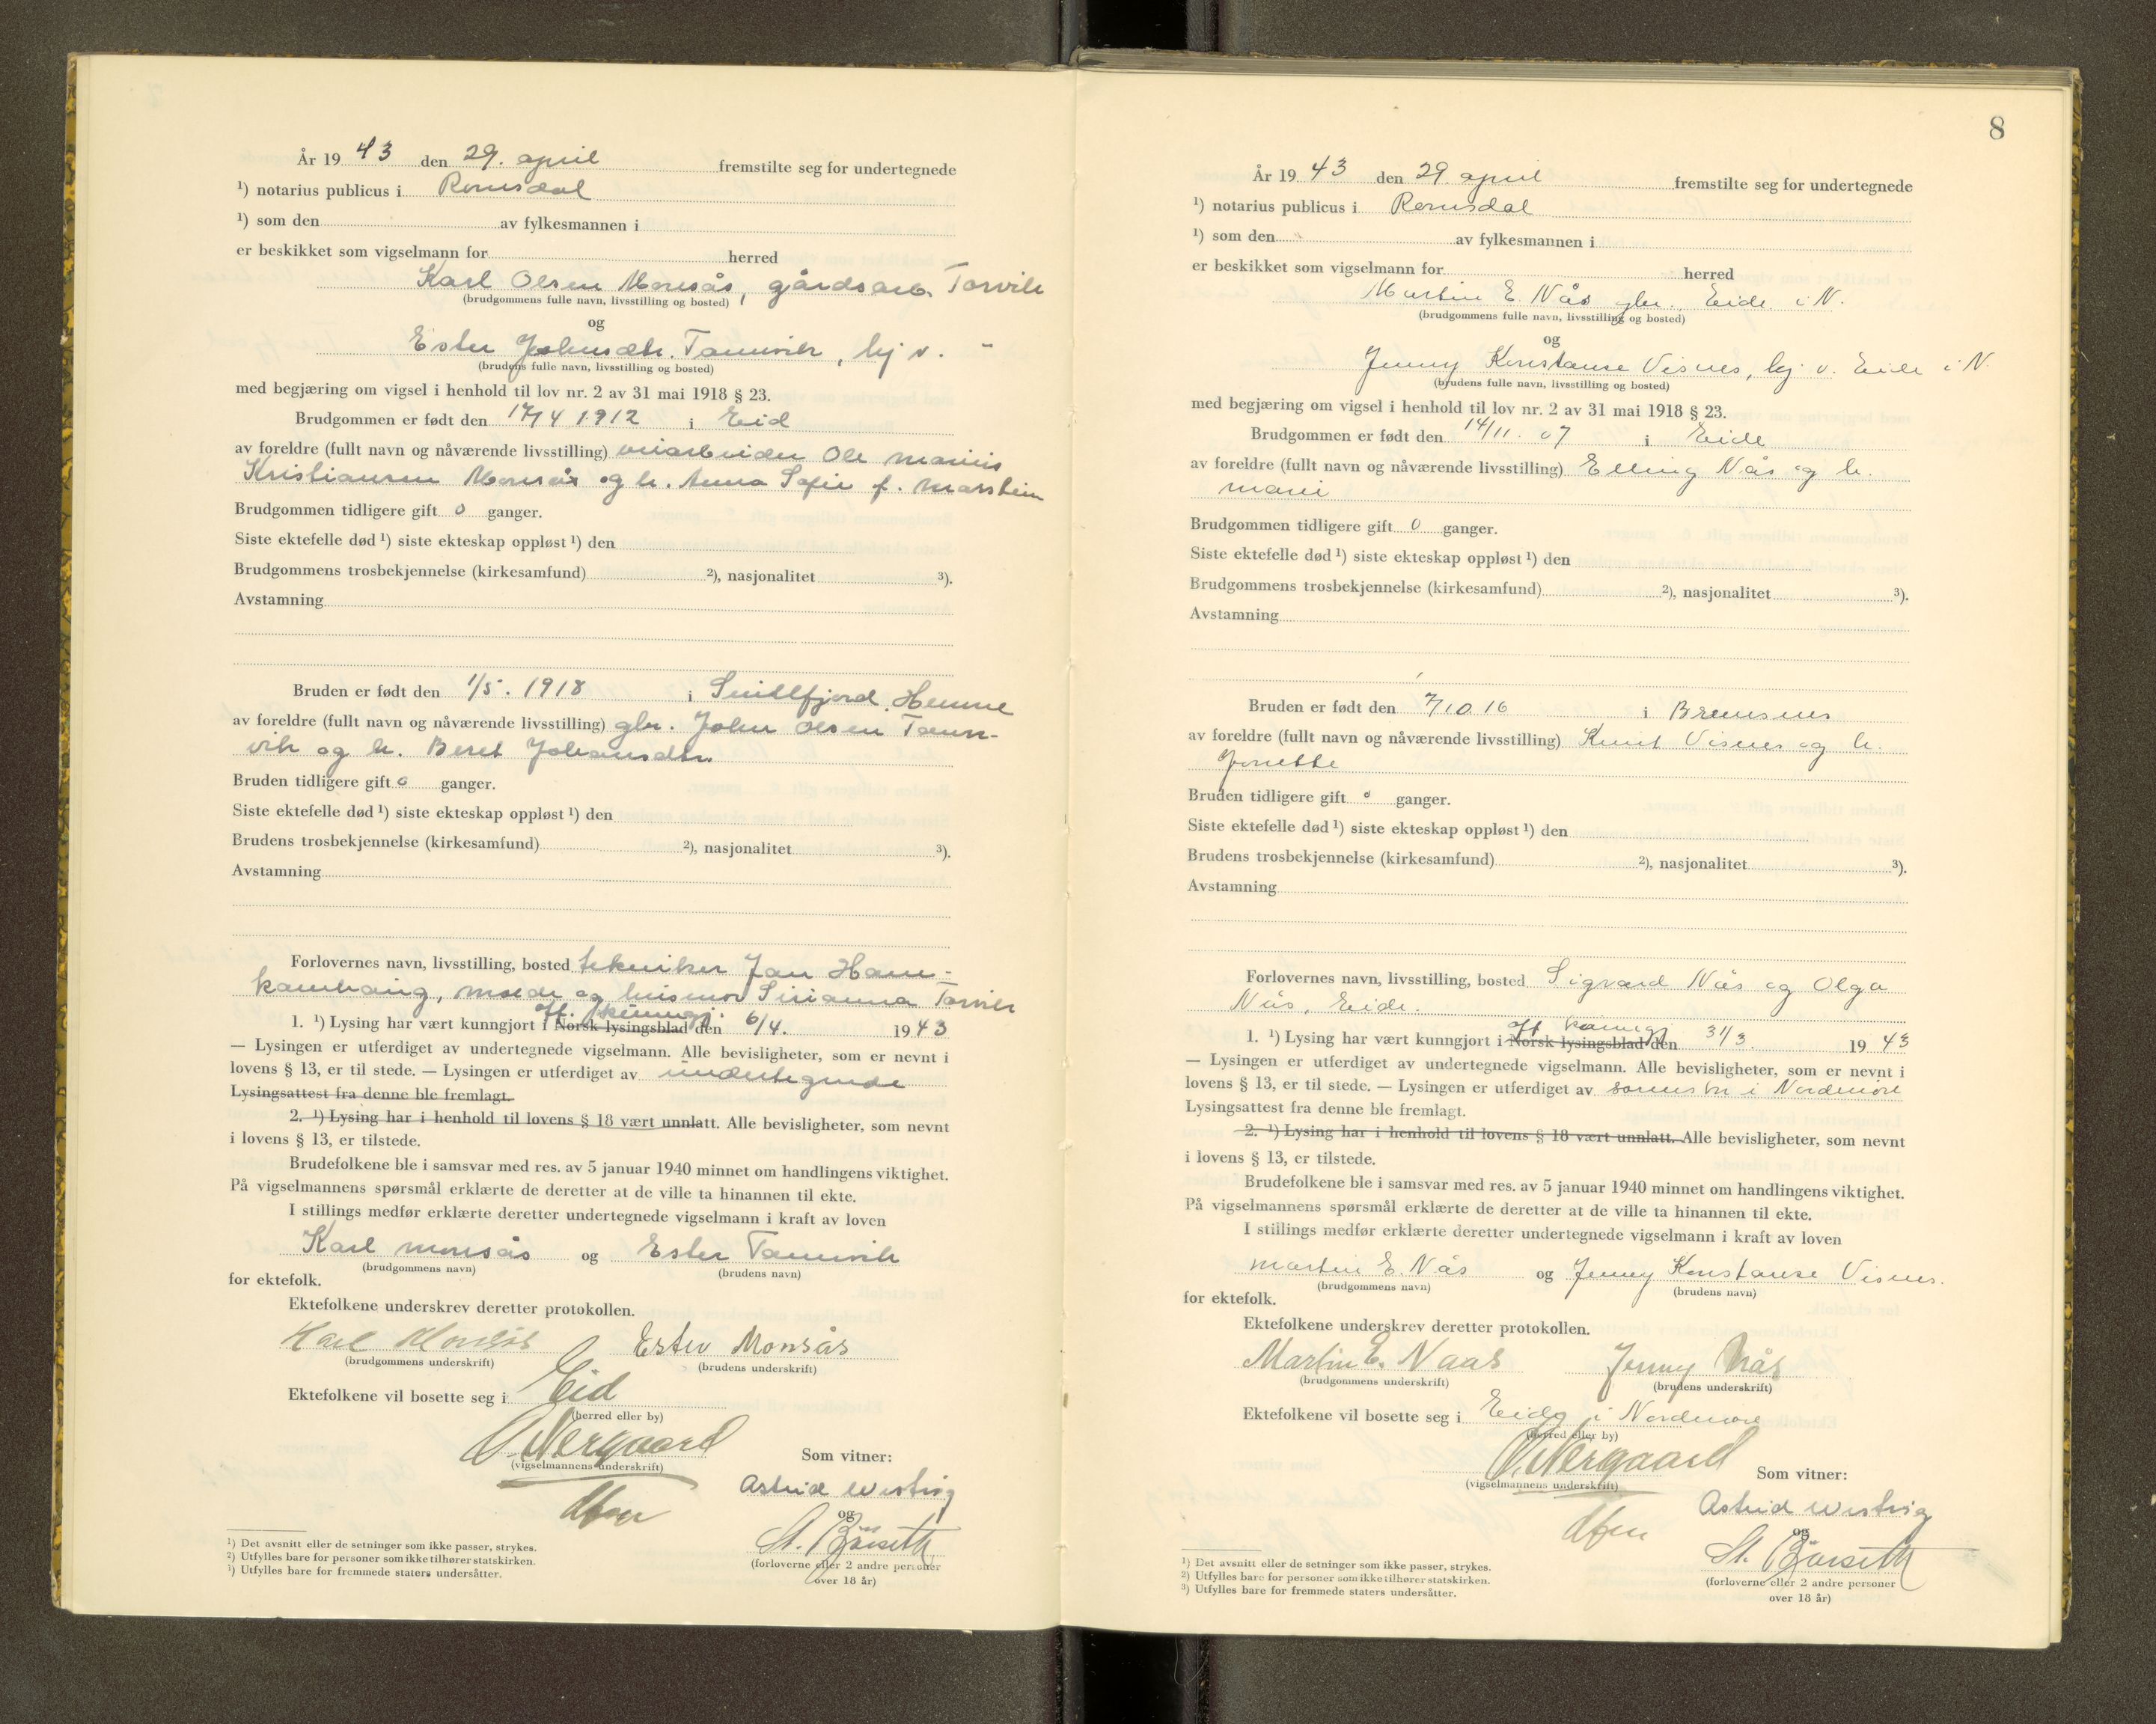 År 19 43 den 29. april fremstilte seg for undertegnede
¹) notarius publicus i Romsdal
¹) som den av fylkesmannen i
er beskikket som vigselmann for herred
Karl Olsen Monsås, gårdsarb. Torvik
(brudgommens fulle navn, livsstilling og bosted)
og
Ester Johnsdtr. Tannvik, hj v. -
(brudens fulle navn, livsstilling og bosted)
med begjæring om vigsel i henhold til lov nr. 2 av 31 mai 1918 § 23.
Brudgommen er født den 17/4 1912 i Eid
av foreldre (fullt navn og nåværende livsstilling) veiarbeider Ole Marius
Kristiansen Monsås og h. Anna Sofie f. Marstein
Brudgommen tidligere gift 0 ganger.
Siste ektefelle død ¹) siste ekteskap oppløst ¹) den
Brudgommens trosbekjennelse (kirkesamfund) ²), nasjonalitet ³).
Avstamning
Bruden er født den 1/5. 1918 i Snillfjord, Hemne
av foreldre (fullt navn og nåværende livsstilling) gbr. John Olsen Tann-
vik og h. Beret Johansdtr.
Bruden tidligere gift 0 ganger.
Siste ektefelle død ¹) siste ekteskap oppløst ¹) den
Brudens trosbekjennelse (kirkesamfund) ²), nasjonalitet ³).
Avstamning
Forlovernes navn, livsstilling, bosted tekniker Jan Ham-
kamhaug, Molde og husmor Torvik
off. kunngj.
1. ¹) Lysing har vært kunngjort i Norsk lysingsblad den 6/4. 1943
— Lysingen er utferdiget av undertegnede vigselmann. Alle bevisligheter, som er nevnt i
lovens § 13, er til stede. — Lysingen er utferdiget av undertegnede
Lysingsattest fra denne ble fremlagt.
2. ¹) Lysing har i henhold til lovens § 18 vært unnlatt. Alle bevisligheter, som nevnt
i lovens § 13, er tilstede.
Brudefolkene ble i samsvar med res. av 5 januar 1940 minnet om handlingens viktighet.
På vigselmannens spørsmål erklærte de deretter at de ville ta hinannen til ekte.
I stillings medfør erklærte deretter undertegnede vigselmann i kraft av loven
Karl Monsås og Ester Tannvik
(brudgommens navn) (brudens navn)
for ektefolk.
Ektefolkene underskrev deretter protokollen.
Karl Monsås Ester Monsås
(brudgommens underskrift) (brudens underskrift)
Ektefolkene vil bosette seg i Eid
(herred eller by)
O. Nergaard
(vigselmannens underskrift)
Som vitner:
Astrid Westvig
og
St. Bårseth
(forloverne eller 2 andre personer
over 18 år)
¹) Det avsnitt eller de setninger som ikke passer, strykes.
²) Utfylles bare for personer som ikke tilhører statskirken.
³) Utfylles bare for fremmede staters undersåtter.
8
År 19 43 den 29. april fremstilte seg for undertegnede
¹) notarius publicus i Romsdal
¹) som den av fylkesmannen i
er beskikket som vigselmann for herred
Martin E. Nås gbr. Eide i N.
(brudgommens fulle navn, livsstilling og bosted)
og
Jenny Konstanse Visnes, hj v. Eide i N.
(brudens fulle navn, livsstilling og bosted)
med begjæring om vigsel i henhold til lov nr. 2 av 31 mai 1918 § 23.
Brudgommen er født den 14/11. 07 i Eide
av foreldre (fullt navn og nåværende livsstilling) Elling Nås og h.
Marie
Brudgommen tidligere gift 0 ganger.
Siste ektefelle død ¹) siste ekteskap oppløst ¹) den
Brudgommens trosbekjennelse (kirkesamfund) ²), nasjonalitet ³).
Avstamning
Bruden er født den 7/10. 16 i Bremsnes
av foreldre (fullt navn og nåværende livsstilling) Knut Visnes og h.
Jonette
Bruden tidligere gift 0 ganger.
Siste ektefelle død ¹) siste ekteskap oppløst ¹) den
Brudens trosbekjennelse (kirkesamfund) ²), nasjonalitet ³).
Avstamning
Forlovernes navn, livsstilling, bosted Sigvard Nås og Olga
Nås, Eide.
off. kunngj
1. ¹) Lysing har vært kunngjort i Norsk lysingsblad den 31/3. 19 43
— Lysingen er utferdiget av undertegnede vigselmann. Alle bevisligheter, som er nevnt i
lovens § 13, er til stede. — Lysingen er utferdiget av sorenskr i Nordmøre
Lysingsattest fra denne ble fremlagt.
2. ¹) Lysing har i henhold til lovens § 18 vært unnlatt. Alle bevisligheter, som nevnt
i lovens § 13, er tilstede.
Brudefolkene ble i samsvar med res. av 5 januar 1940 minnet om handlingens viktighet.
På vigselmannens spørsmål erklærte de deretter at de ville ta hinannen til ekte.
I stillings medfør erklærte deretter undertegnede vigselmann i kraft av loven
Martin E. Nås og Jenny Konstanse Visnes.
(brudgommens navn) (brudens navn)
for ektefolk.
Ektefolkene underskrev deretter protokollen.
Martin E. Naas Jenny Nås
(brudgommens underskrift) (brudens underskrift)
Ektefolkene vil bosette seg i Eide i Nordmøre
(herred eller by)
O. Nergaard
(vigselmannens underskrift)
Som vitner:
Astrid Westvig
og
St. Bårseth
(forloverne eller 2 andre personer
over 18 år)
¹) Det avsnitt eller de setninger som ikke passer, strykes.
²) Utfylles bare for personer som ikke tilhører statskirken.
³) Utfylles bare for fremmede staters undersåtter.